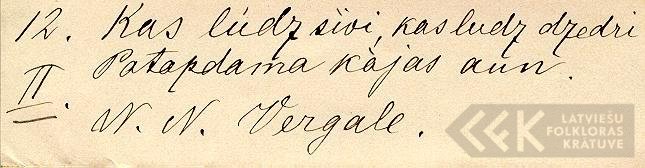 12. Kas lúdz sìvi, kas ludz dzedri
II. Patapdama kàjas aun.
N. N. Vergale.
LATVIEŠU
FOLKLORAS
KRATUVE